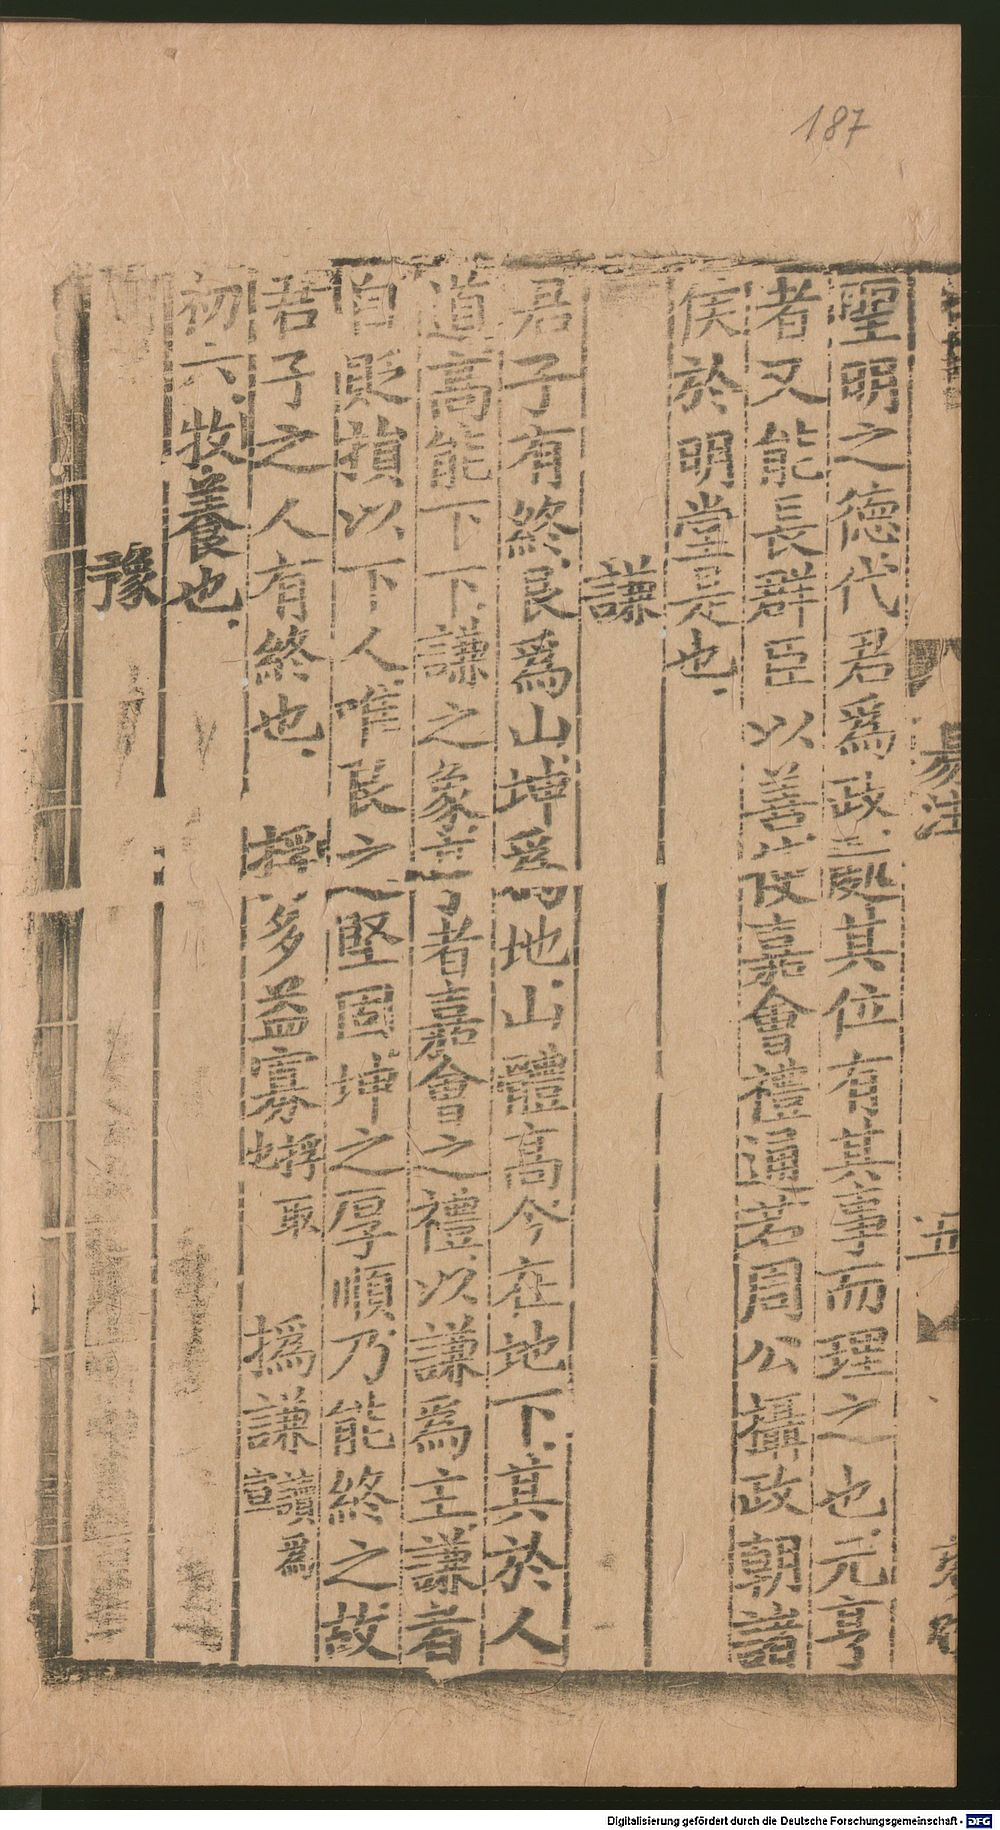 187
聖明之德代君爲政處其位有其事而理之也元亨
者又能長群臣以善使嘉會禮通若周公攝政朝諸
侯於明堂是也
謙
君子有終艮爲山坤爲地山體高今在地下其於人
道高能下下謙之象亨者嘉會之禮以謙爲主謙者
自貶損以下人唯艮之堅固坤之厚順乃能終之故
君子之人有終也 捊多益寡捊取也 撝謙讀爲宣
初六牧養也
豫
易注
五
Digitalisierung gefördert durch die Deutsche Forschungsgemeinschaft - DFG